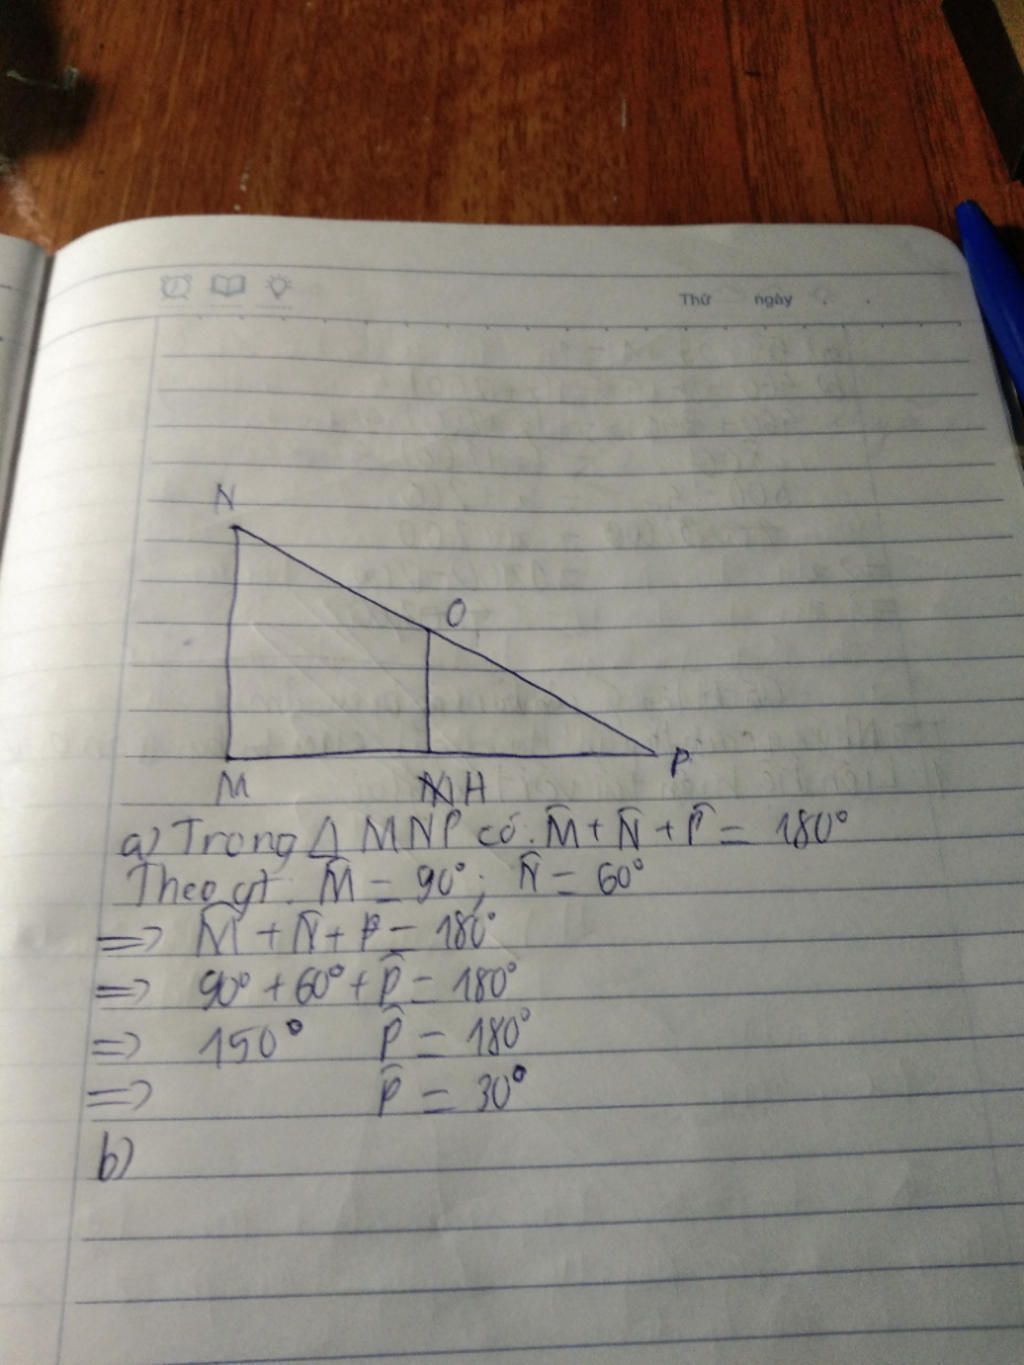 Thứ ngày
N
O
M H P
a) Trong Δ MNP có: M̂ + N̂ + P̂ = 180°
Theo gt: M̂ = 90°; N̂ = 60°
=> M̂ + N̂ + P̂ = 180°
=> 90° + 60° + P̂ = 180°
=> 150° P̂ = 180°
=> P̂ = 30°
b)